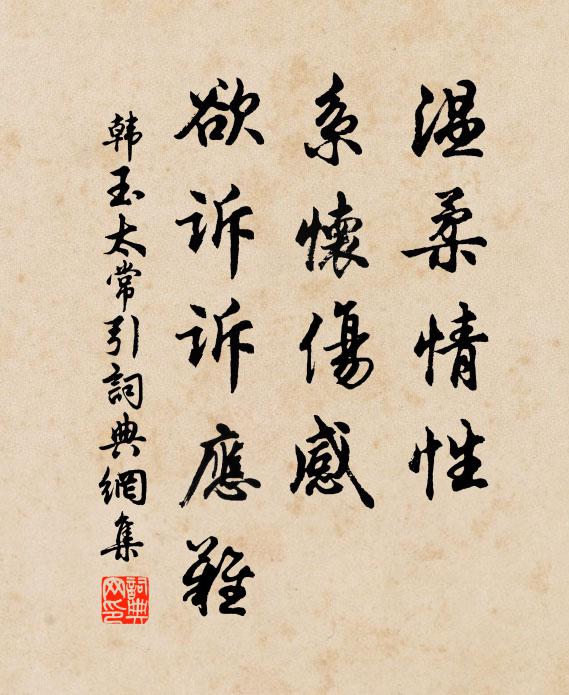 温柔情性
系懷傷感
欲訴訴應難
韩玉太常引詞典網集
詞典網印